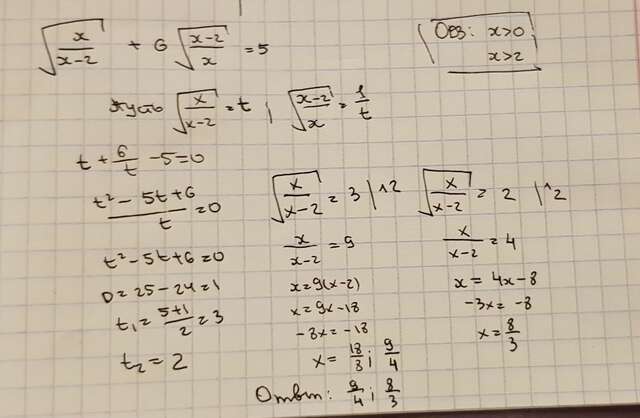 √(x/(x-2)) + 6 √((x-2)/x) = 5
Одз: x>0
x>2
пусть √(x/(x-2)) = t ; √((x-2)/x) = 1/t
t + 6/t - 5 = 0
(t² - 5t + 6)/t = 0
t² - 5t + 6 = 0
D = 25 - 24 = 1
t₁ = (5+1)/2 = 3
t₂ = 2
√(x/(x-2)) = 3 |^2
x/(x-2) = 9
x = 9(x-2)
x = 9x - 18
-8x = -18
x = 18/8 ; 9/4
√(x/(x-2)) = 2 |^2
x/(x-2) = 4
x = 4x - 8
-3x = -8
x = 8/3
Ответ: 9/4 ; 8/3